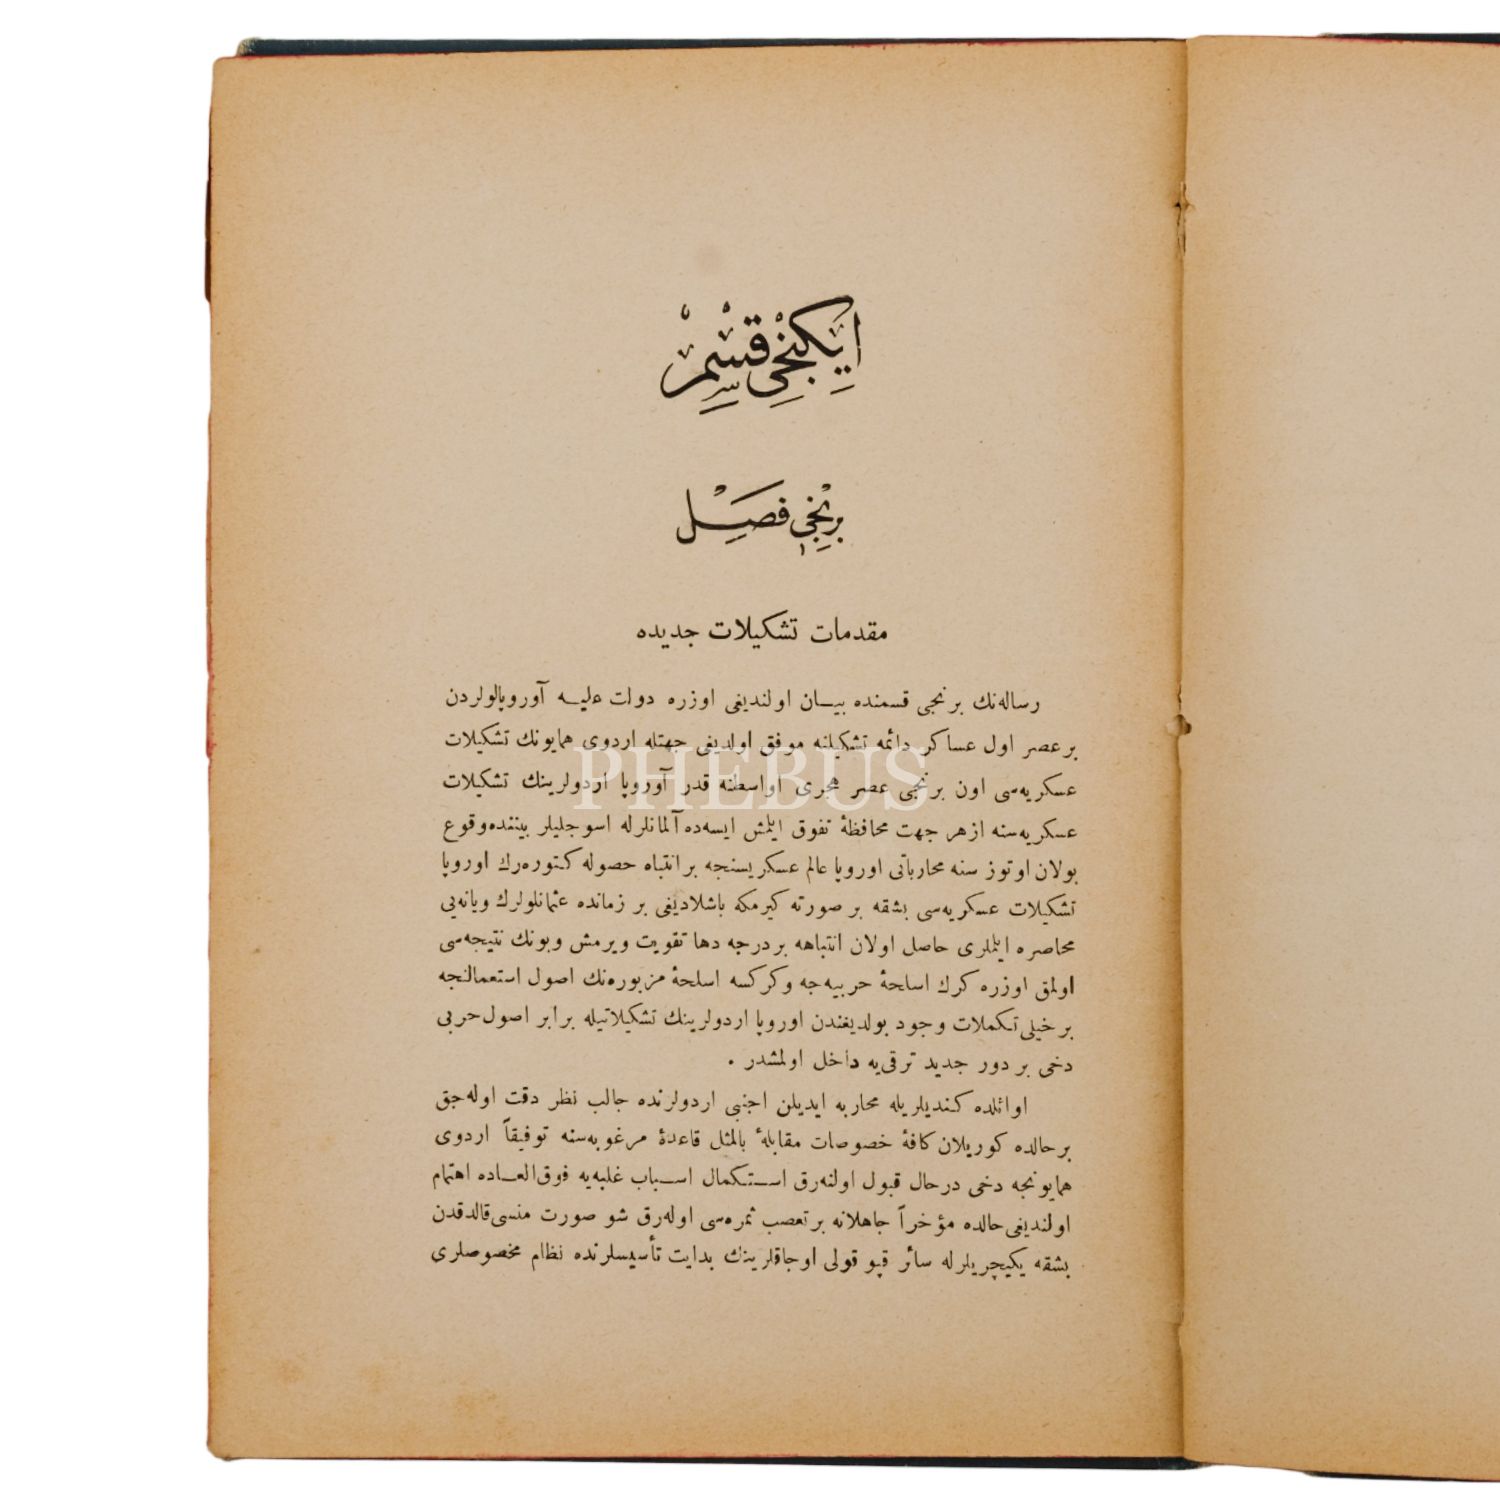 ايكنجى قسم
برنجى فصل
مقدمات تشكيلات جديده
رساله‌نك برنجى قسمنده بيان اولنديغى اوزره دولت عليه آوروپالولردن
بر عصر اول عساكر دائمه تشكيلنه موفق اولديغى جهتله اردوى همايونك تشكيلات
عسكريه‌سى اون برنجى عصر هجرى اواسطنه قدر آوروپا اردولرينك تشكيلات
عسكريه‌سنه از هر جهت محافظهٔ تفوق ايلمش ايسه‌ده آلمانلرله اسوجليلر بيننده وقوع
بولان اوتوز سنه محارباتى اوروپا عالم عسكريسنجه بر انتباه حصوله كتوره‌رك اوروپا
تشكيلات عسكريه‌سى بشقه بر صورته كيرمكه باشلاديغى بر زمانده عثمانلولرك ويانه‌يى
محاصره ايلملرى حاصل اولان انتباهه بر درجه دها تقويت ويرمش و بونك نتيجه‌سى
اولمق اوزره كرك اسلحهٔ حربيه‌جه و كركسه اسلحهٔ مزبوره‌نك اصول استعمالنجه
بر خيلى تكملات وجود بولديغندن اوروپا اردولرينك تشكيلاتيله برابر اصول حربى
دخى بر دور جديد ترقى‌يه داخل اولمشدر .
اوائلده كنديلريله محاربه ايديلن اجنبى اردولرنده جالب نظر دقت اوله‌جق
بر حالده كوريلان كافهٔ خصوصات مقابلهٔ بالمثل قاعدهٔ مرغوبه‌سنه توفيقاً اردوى
همايونجه دخى درحال قبول اولنه‌رق استكمال اسباب غلبه‌يه فوق العاده اهتمام
اولنديغى حالده مؤخراً جاهلانه بر تعصب ثمره‌سى اوله‌رق شو صورت منسى قالدقدن
بشقه يكيچريلرله سائر قپو قولى اوجاقلرينك بدايت تأسيسلرنده نظام مخصوصلرى
PHEBUS